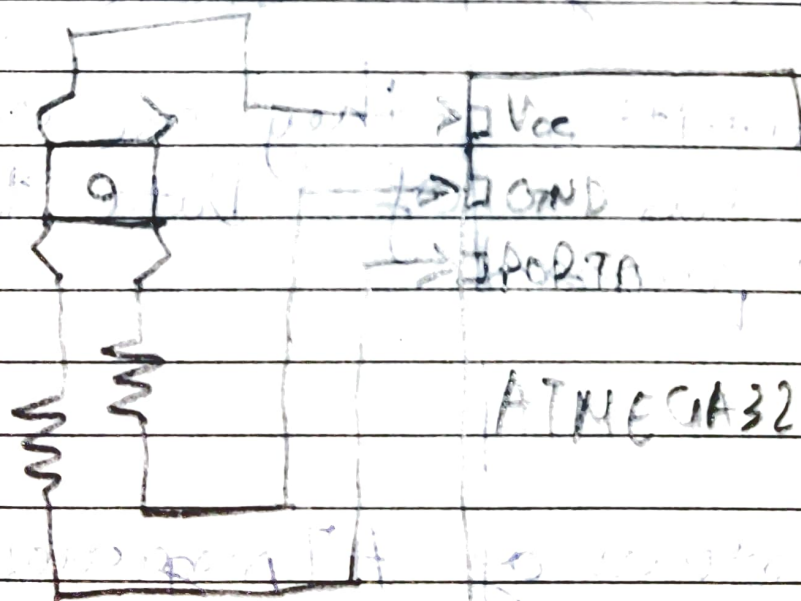 Vcc
GND
PORTD
ATMEGA32